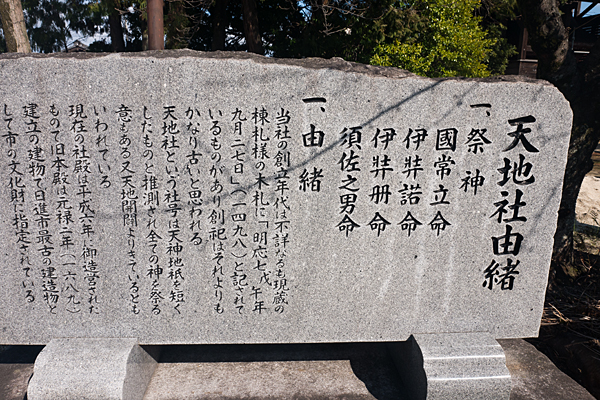 天地社由緒
一、祭神
國常立命
伊弉諾命
伊弉册命
須佐之男命
一、由緒
当社の創立年代は不詳なるも現蔵の
棟札様の木札に「明応七戊午年
九月二七日」(一四九八)と記されて
いるものがあり創祀はそれよりも
かなり古いと思われる
天地社という社号は天神地祇を短く
したものと推測され全ての神を祭る
意もある又天地開闢よりきているとも
いわれている
現在の社殿は平成六年に御造営された
もので旧本殿は元禄二年(一六八九)
建立の建物で日進市最古の建造物と
して市の文化財に指定されている